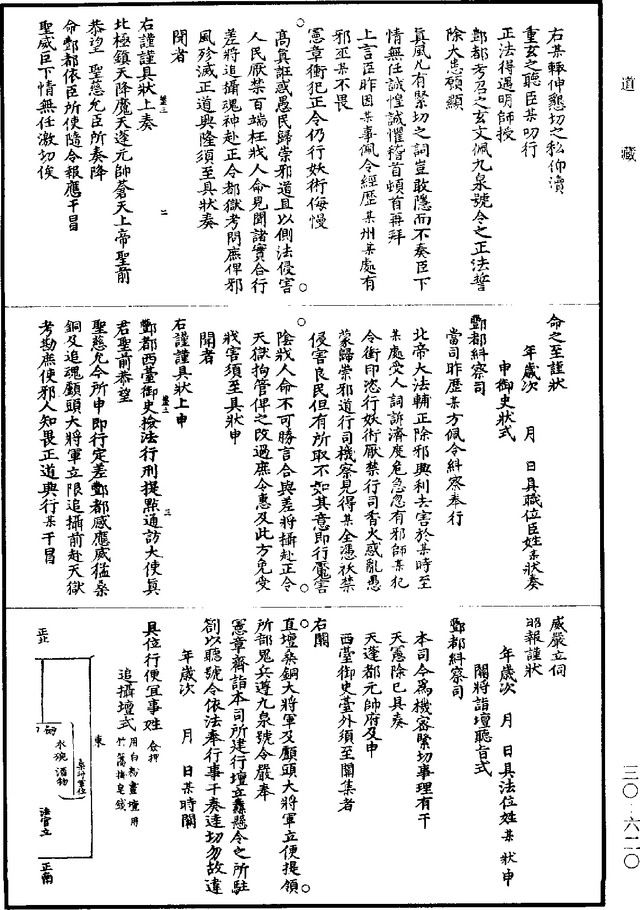 道藏
右某輒伸懇切之私仰瀆
重玄之聽臣某叨行
正法得遇明師授
酆都考召之玄文佩九泉號令之正法誓
除大忠願顯
真風凡有緊切之詞豈敢隱而不奏臣下
情無任誠惶誠懼稽首頓首再拜
上言臣昨因某事佩令經歷某州某處有
邪巫某不畏
憲章衝犯正令仍行妖術侮慢
高真誑惑愚民歸崇邪道且以側法侵害
人民厭禁百端枉戕人命見聞諸實合行
差將追攝魂神赴正令都獄考問庶俾邪
風殄滅正道興隆須至具狀奏
聞者
右謹謹具狀上奏
北極鎮天降魔天蓬元帥蒼天上帝聖前
恭望 聖慈允臣所奏降
命酆都依臣所使隨令報應干冒
聖威臣下情無任激切俟
命之至謹狀
年歲次 月 日具職位臣姓某狀奏
申御史狀式
酆都糾察司
當司昨歷某方佩令糾察奉行
北帝大法輔正除邪興利去害於某時至
某處受人詞訴濟度危急忽有邪師某犯
令銜印恣行妖術厭禁行司香火惑亂愚
蒙歸崇邪道行司機察見得某全憑妖禁
侵害良民但有所取不如其意即行魘害
陰戕人命不可勝言合與差將攝赴正令
天獄拘管俾之改過庶令惠及此方免受
戕害須至具狀申
聞者
右謹謹具狀上申
酆都西臺御史撿法行刑提點通訪大使真
君聖前恭望
聖慈允令所申即行定差酆都感應威猛桑
銅及追魂顱頭大將軍立限追攝前赴天獄
考勘庶使邪人知畏正道興行某干冒
威嚴立伺
昭報謹狀
年歲次 月 日具法位姓某 狀申
關將詣壇聽旨式
酆都糾察司
本司今為機密緊切事理有干
天憲除已具奏
天蓬都元帥府及申
西臺御史臺外須至關集者
右關
直壇桑銅大將軍及顱頭大將軍立便提領
所部鬼兵遵九泉號令嚴奉
憲章齊詣本司所建行壇立纛懸令之所駐
劄以聽號令依法奉行事干奏達切勿故違
年歲次 月 日某時關
具位行便宜事姓 僉押
追攝壇式 用白粉畫壇用
竹篙掛皂錢
東
正北
水碗 酒物
法官立
正南
三〇·六二〇